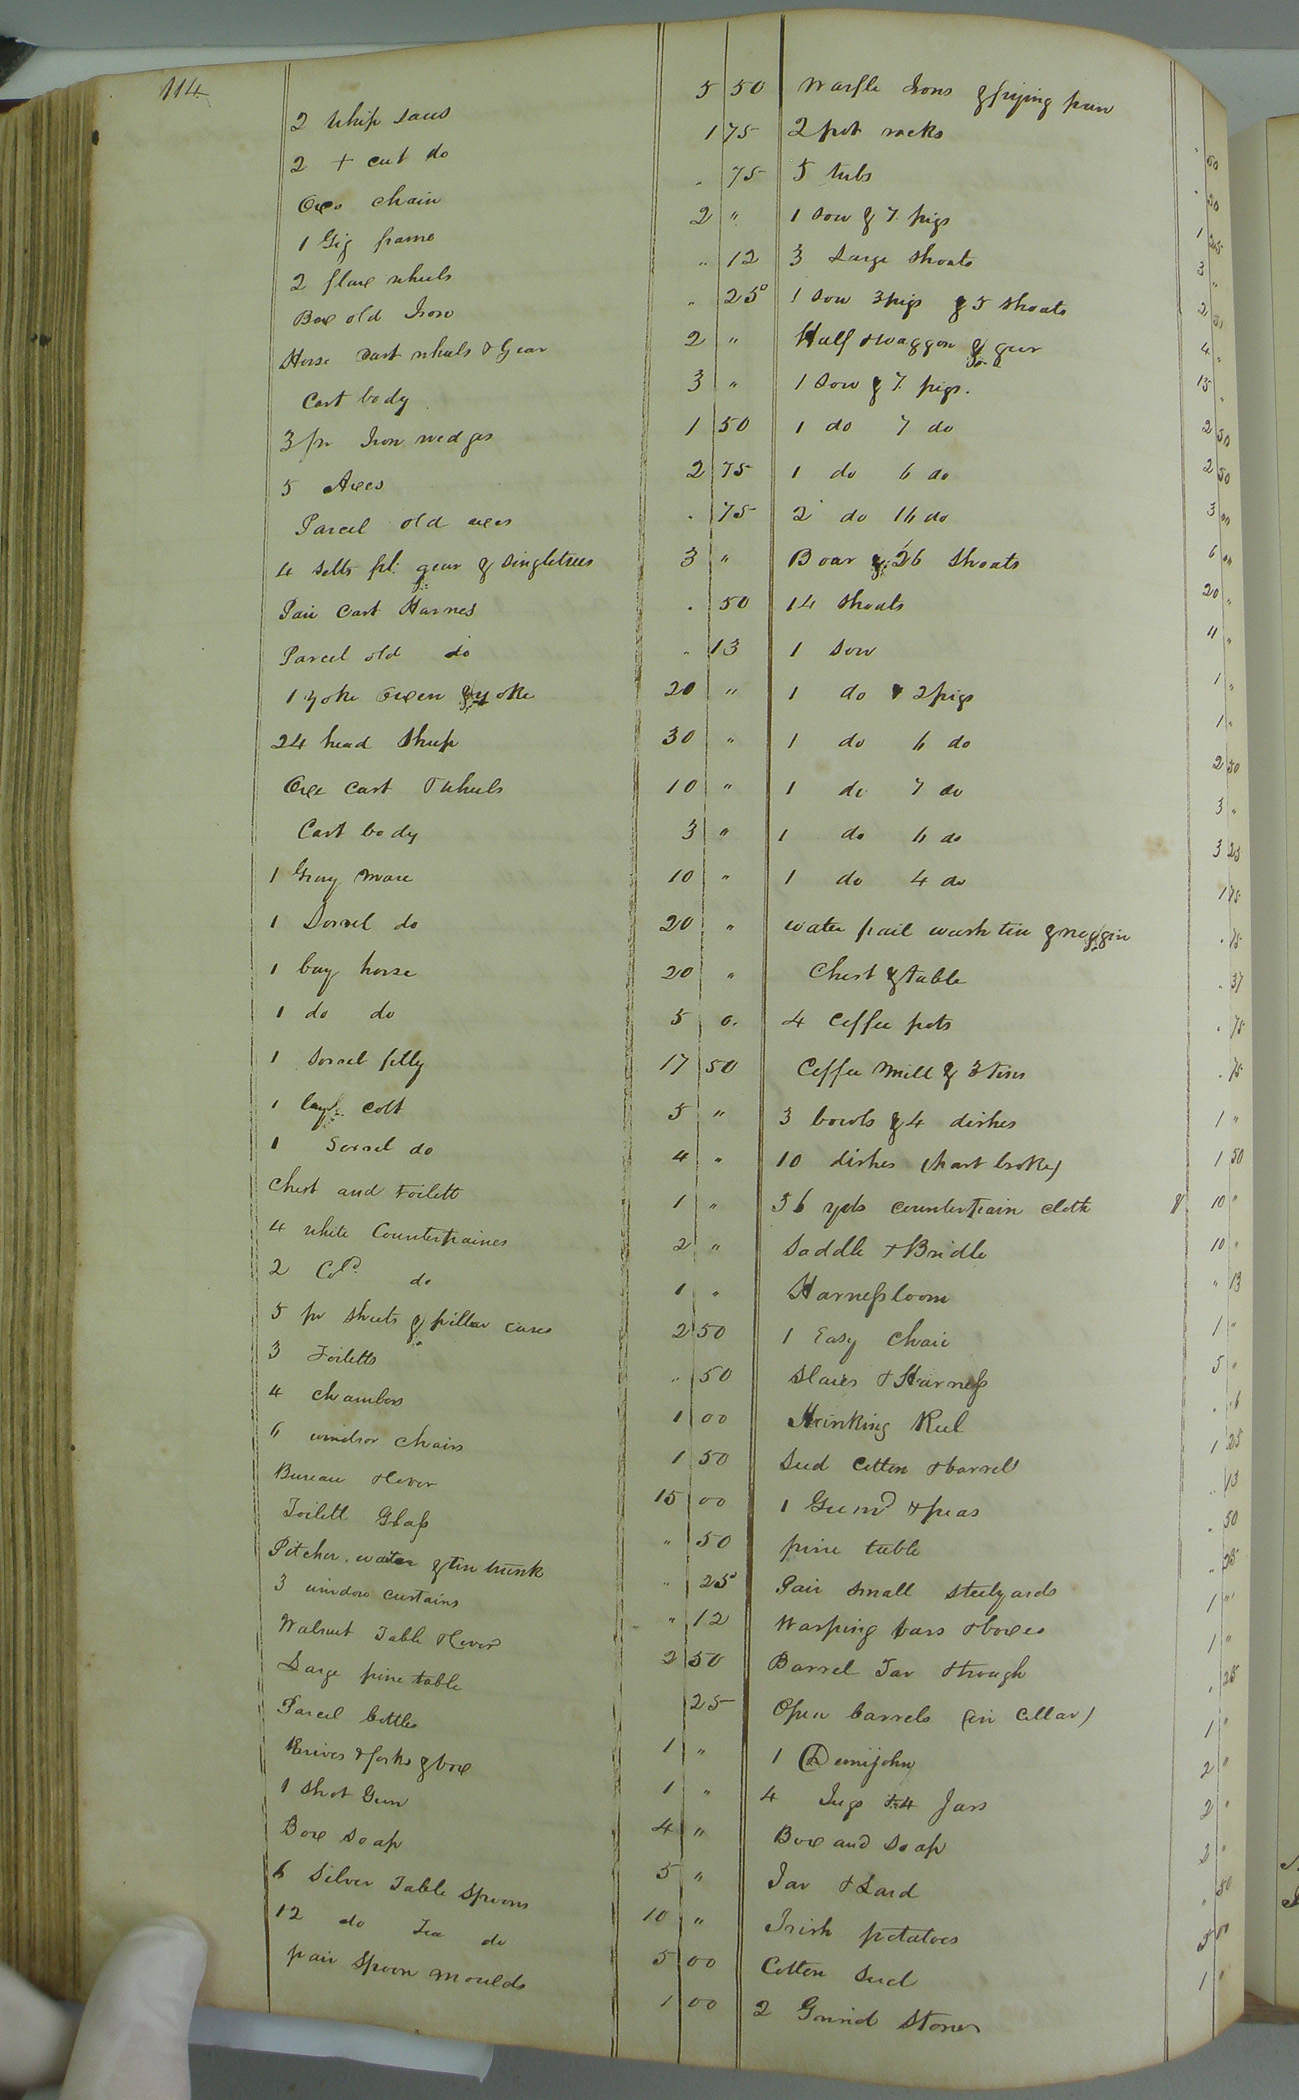 114
2 Whip saws 5 50
2 + cut do 1 75
Oxe chain . 75
1 Gig frame 2 "
2 flaxe wheels " 12
Boxe old Iron " 25
Horse cart wheels & Gear 2 "
Cart body 3 "
3 pr Iron wedges 1 50
5 Axes 2 75
Parcel old axes . 75
4 setts pl: gear & singletrees 3 "
Pair Cart Harnes . 50
Parcel old do . 13
1 yoke oxen & yoke 20 "
24 head sheep 30 "
Oxe cart & wheels 10 "
Cart body 3 "
1 Gray mare 10 "
1 Sorrel do 20 "
1 bay horse 20 "
1 do do 5 0.
1 Sorrel filly 17 50
1 bay colt 5 "
1 Sorrel do 4 "
Chest and toilett 1 "
4 white Counterpaines 2 "
2 Cold. do 1 "
5 pr sheets & pillow cases 2 50
3 Toiletts " 50
4 chambers 1 00
6 windsor chairs 1 50
Bureau & cover 15 00
Toilett Glass " 50
Pitcher, waiter & tin trunk " 25
3 window curtains " 12
Walnut Table & cover 2 50
Large pine table 25
Parcel bottles 1 "
Knives & forks & boxe 1 "
1 shot Gun 4 "
Boxe soap 5 "
6 Silver Table Spoons 10 "
12 do Tea do 5 00
pair Spoon moulds 1 00
Waffle Irons & frying pan . 50
2 pot racks . 20
5 tubs 1 25
1 sow & 7 pigs 3 "
3 Large shoats 2 50
1 sow 3 pigs & 5 shoats 4 "
Half waggon & gear 15 "
1 sow & 7 pigs. 2 50
1 do 7 do 2 50
1 do 6 do 3 00
2 do 16 do 6 00
Boar & 26 shoats 20 "
14 shoats 11 "
1 sow 1 "
1 do & 2 pigs 1 "
1 do 6 do 2 50
1 do 7 do 3 "
1 do 6 do 3 25
1 do 4 do 1 75
water pail wash tin & noggin . 75
Chest & table . 37
4 Coffee pots . 75
Coffee mill & 3 tins . 75
3 bowls & 4 dishes 1 "
10 dishes (part broke) 1 50
36 yds counterpain cloth 10 "
Saddle & Bridle 10 "
Harness loom " 13
1 Easy chair 1 "
Slaies & Harness 5 "
Shrinking Reel . 6
Seed Cotton & barrel 1 25
1 Gum & peas " 13
pine table . 50
Pair small steelyards " 25
Warping bars & boxes 1 "
Barrel Tar & trough 1 "
Open barrels (in Cellar) . 25
1 Demijohn 1 "
4 Jugs & 4 Jars 2 "
Boxe and Soap 2 "
Jar & Lard 2 "
Irish potatoes " 50
Cotton Seed 5 00
2 Grind Stones 1 "